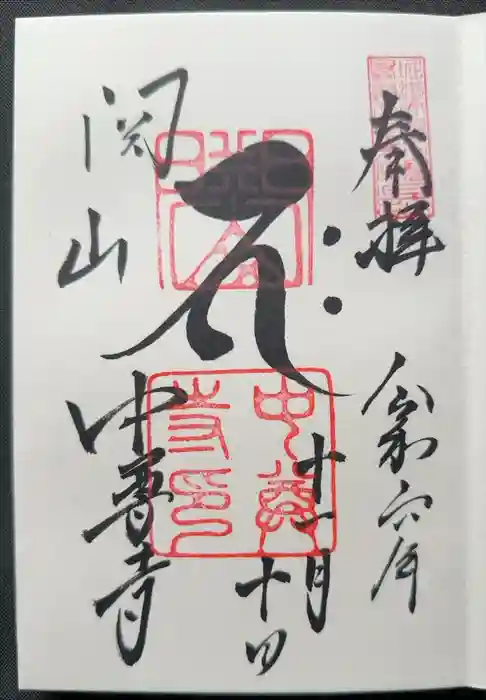 奉拝
令和六年
十一月
十日
𑖥𑖾
関山
中尊寺
中尊
寺印